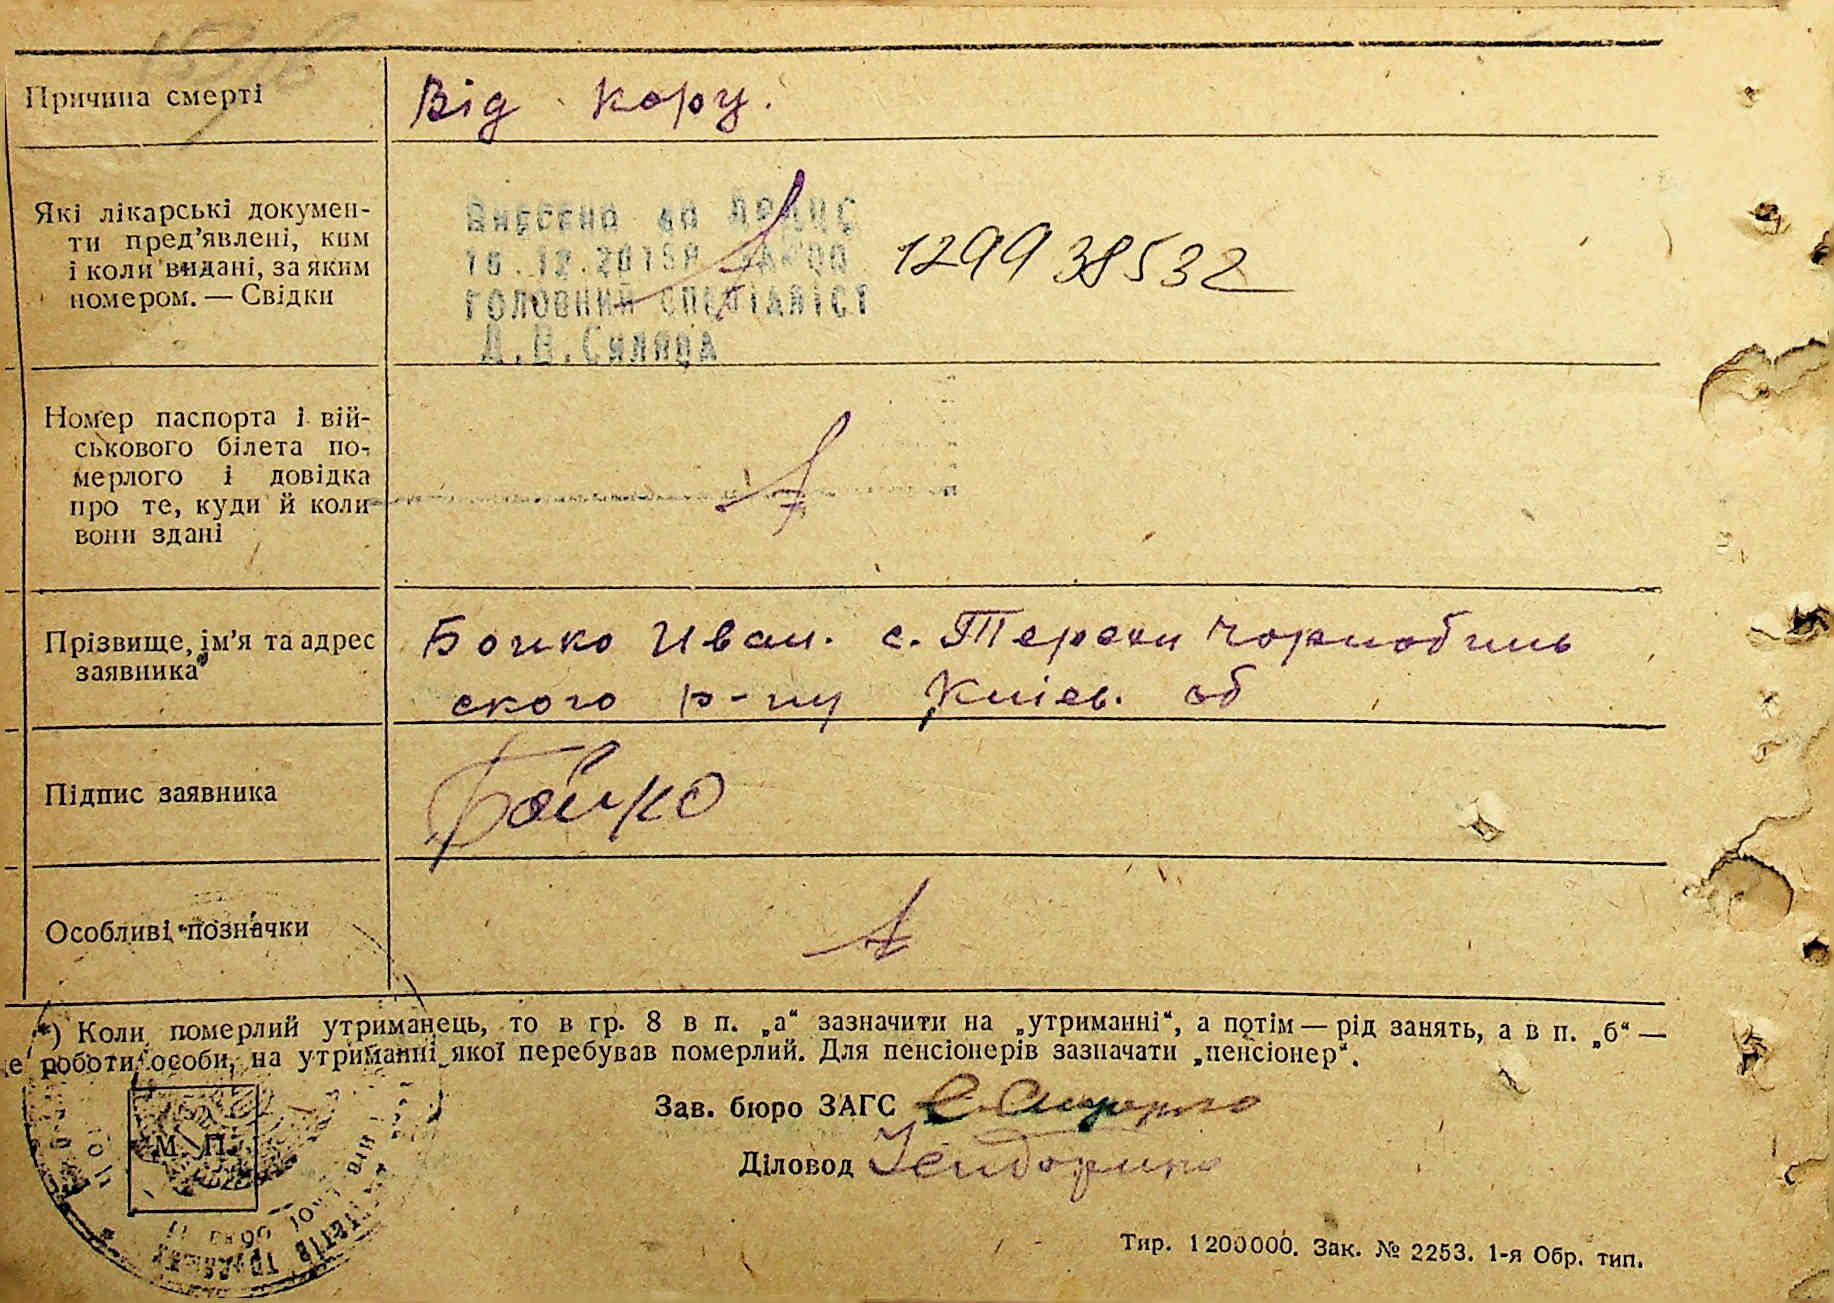 Причина смерті
Від кору.
Які лікарські докумен-
ти пред’явлені, ким
і коли видані, за яким
номером. — Свідки
Внесено до ДРАЦС
головний спеціаліст
129938532
Номер паспорта і вій-
ськового білета по-
мерлого і довідка
про те, куди й коли
вони здані
Прізвище, ім’я та адрес
заявника
Бойко Иван. с. Терехи Чорнобиль
ского р-ну Київ. об
Підпис заявника
Бойко
Особливі позначки
*) Коли померлий утриманець, то в гр. 8 в п. „а“ зазначити на „утриманні“, а потім — рід занять, а в п. „б“ —
е роботи особи, на утриманні якої перебував померлий. Для пенсіонерів зазначати „пенсіонер“.
Зав. бюро ЗАГС
М. П.
Діловод
Тир. 1200000. Зак. № 2253. 1-я Обр. тип.